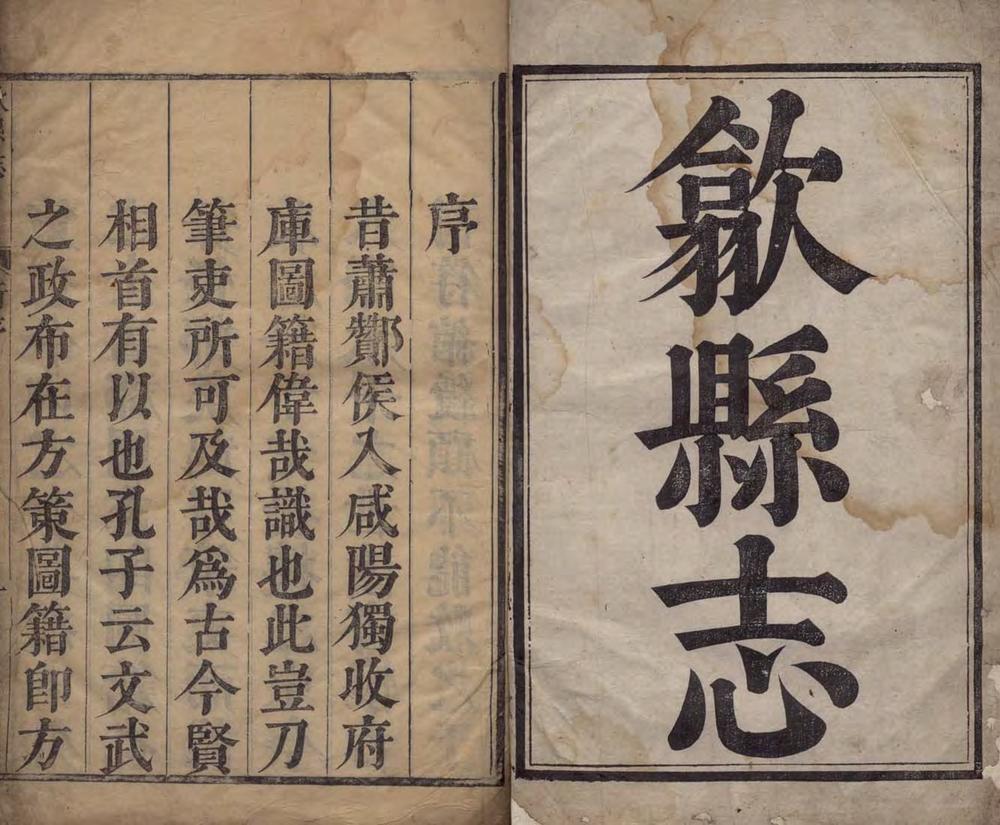 歙縣志
序
昔蕭酇侯入咸陽獨收府
庫圖籍偉哉識也此豈刀
筆吏所可及哉爲古今賢
相首有以也孔子云文武
之政布在方策圖籍卽方